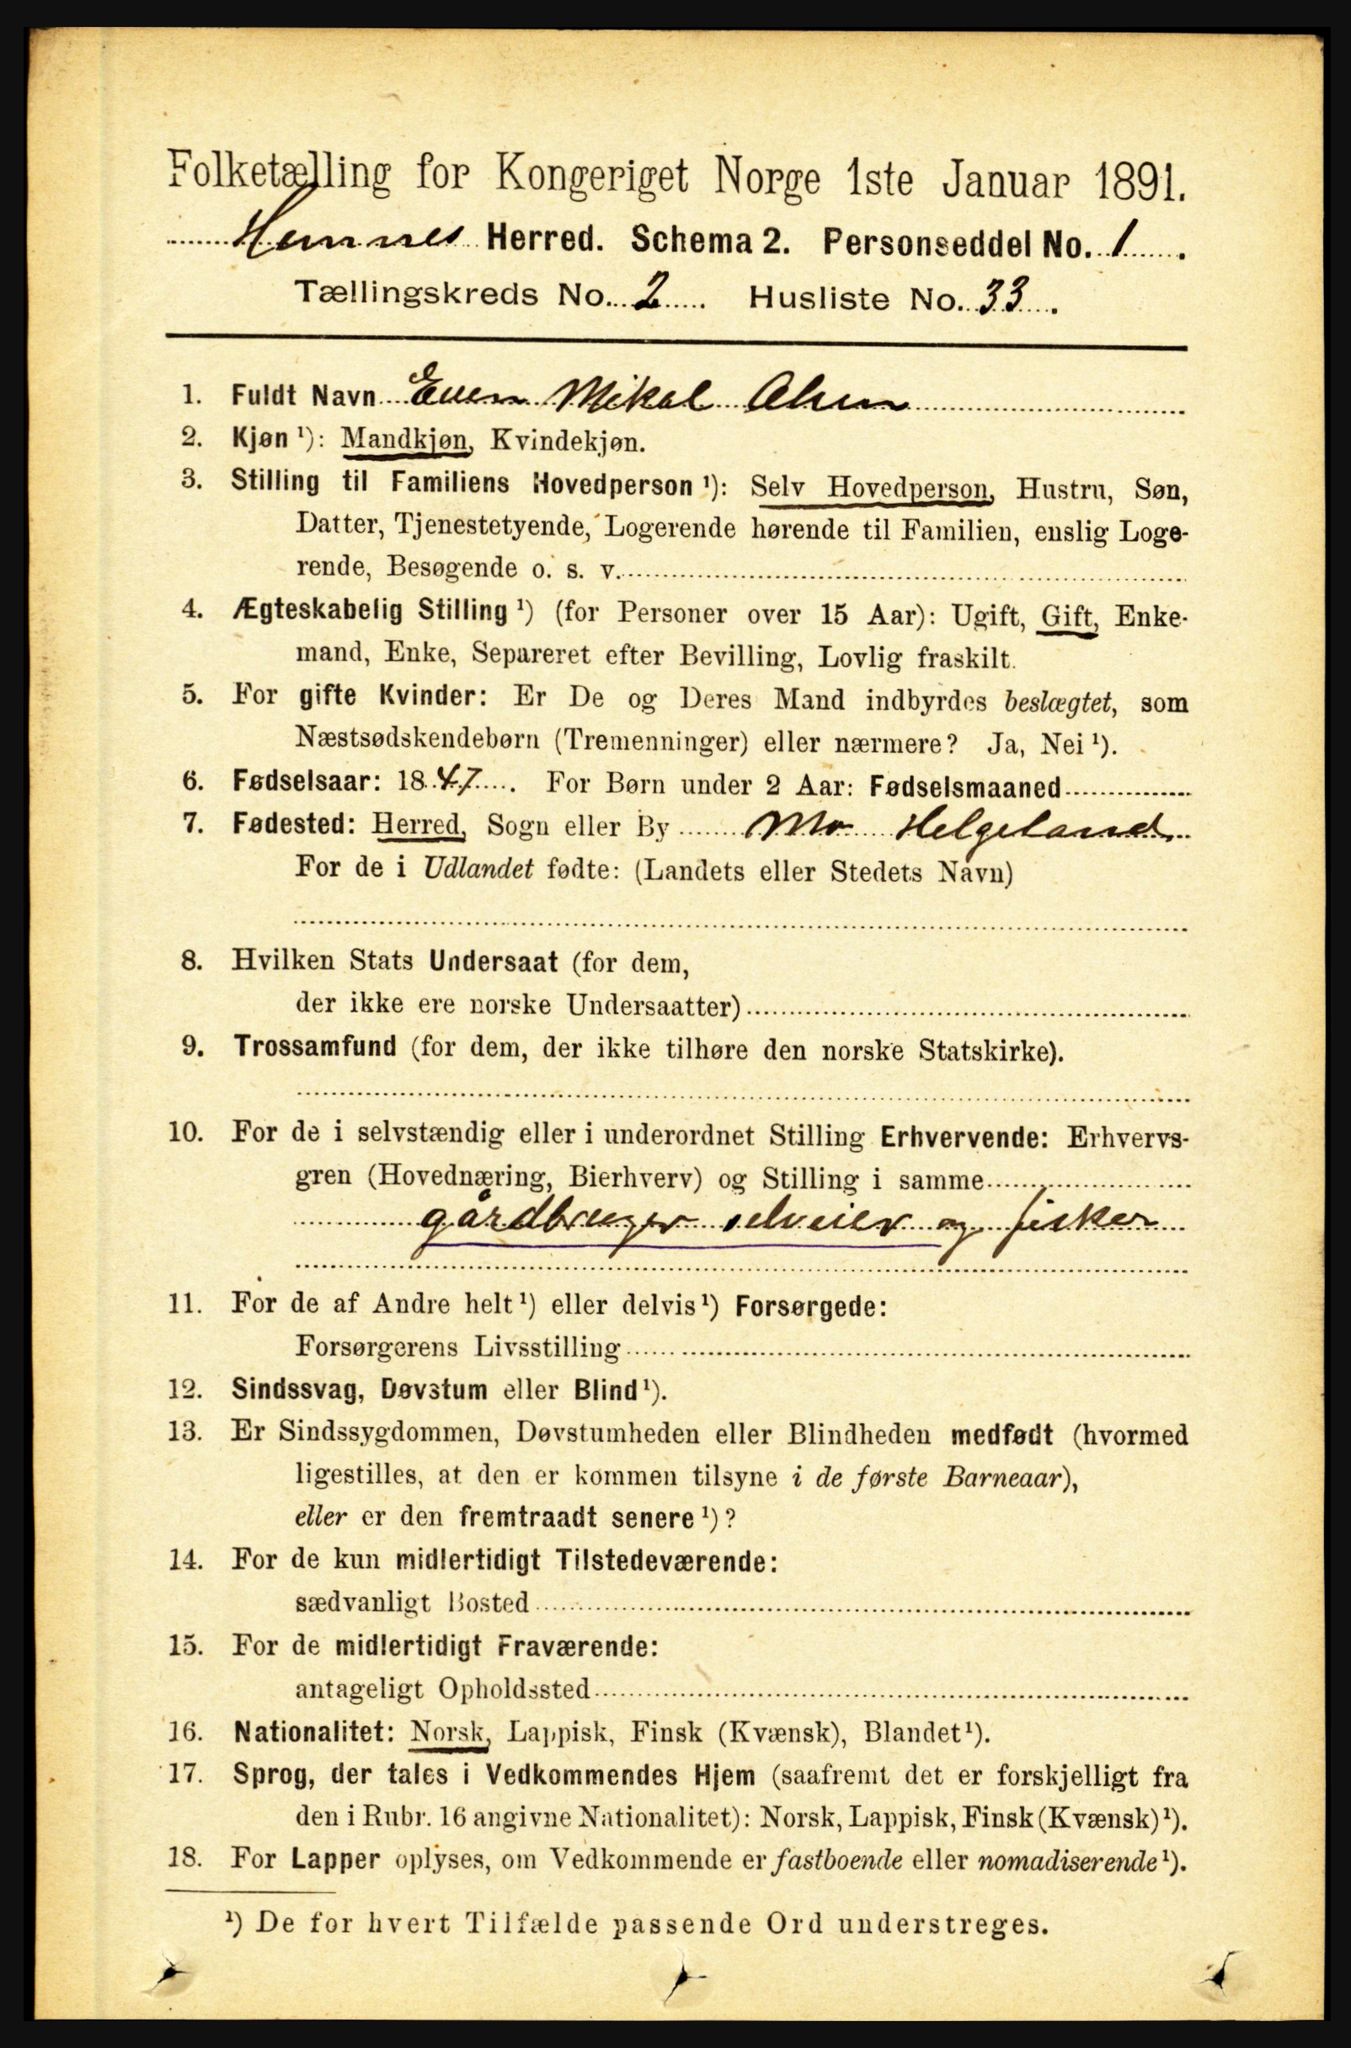 Folketælling for Kongeriget Norge 1ste Januar 1891.
Hemnes Herred. Schema 2. Personseddel No. 1.
Tællingskreds No. 2. Husliste No. 33.
1. Fuldt Navn Even Mikal Olsen
2. Kjøn ¹): Mandkjøn, Kvindekjøn.
3. Stilling til Familiens Hovedperson ¹): Selv Hovedperson, Hustru, Søn,
Datter, Tjenestetyende, Logerende hørende til Familien, enslig Loge-
rende, Besøgende o. s. v.
4. Ægteskabelig Stilling ¹) (for Personer over 15 Aar): Ugift, Gift, Enke-
mand, Enke, Separeret efter Bevilling, Lovlig fraskilt.
5. For gifte Kvinder: Er De og Deres Mand indbyrdes beslægtet, som
Næstsødskendebørn (Tremenninger) eller nærmere? Ja, Nei ¹).
6. Fødselsaar: 1847. For Børn under 2 Aar: Fødselsmaaned
7. Fødested: Herred, Sogn eller By Mo Helgeland
For de i Udlandet fødte: (Landets eller Stedets Navn)
8. Hvilken Stats Undersaat (for dem,
der ikke ere norske Undersaatter)
9. Trossamfund (for dem, der ikke tilhøre den norske Statskirke).
10. For de i selvstændig eller i underordnet Stilling Erhvervende: Erhvervs-
gren (Hovednæring, Bierhverv) og Stilling i samme
gårdbruger selveier og fisker
11. For de af Andre helt ¹) eller delvis ¹) Forsørgede:
Forsørgerens Livsstilling
12. Sindssvag, Døvstum eller Blind ¹).
13. Er Sindssygdommen, Døvstumheden eller Blindheden medfødt (hvormed
ligestilles, at den er kommen tilsyne i de første Barneaar),
eller er den fremtraadt senere ¹)?
14. For de kun midlertidigt Tilstedeværende:
sædvanligt Bosted
15. For de midlertidigt Fraværende:
antageligt Opholdssted
16. Nationalitet: Norsk, Lappisk, Finsk (Kvænsk), Blandet ¹).
17. Sprog, der tales i Vedkommendes Hjem (saafremt det er forskjelligt fra
den i Rubr. 16 angivne Nationalitet): Norsk, Lappisk, Finsk (Kvænsk) ¹).
18. For Lapper oplyses, om Vedkommende er fastboende eller nomadiserende ¹).
¹) De for hvert Tilfælde passende Ord understreges.